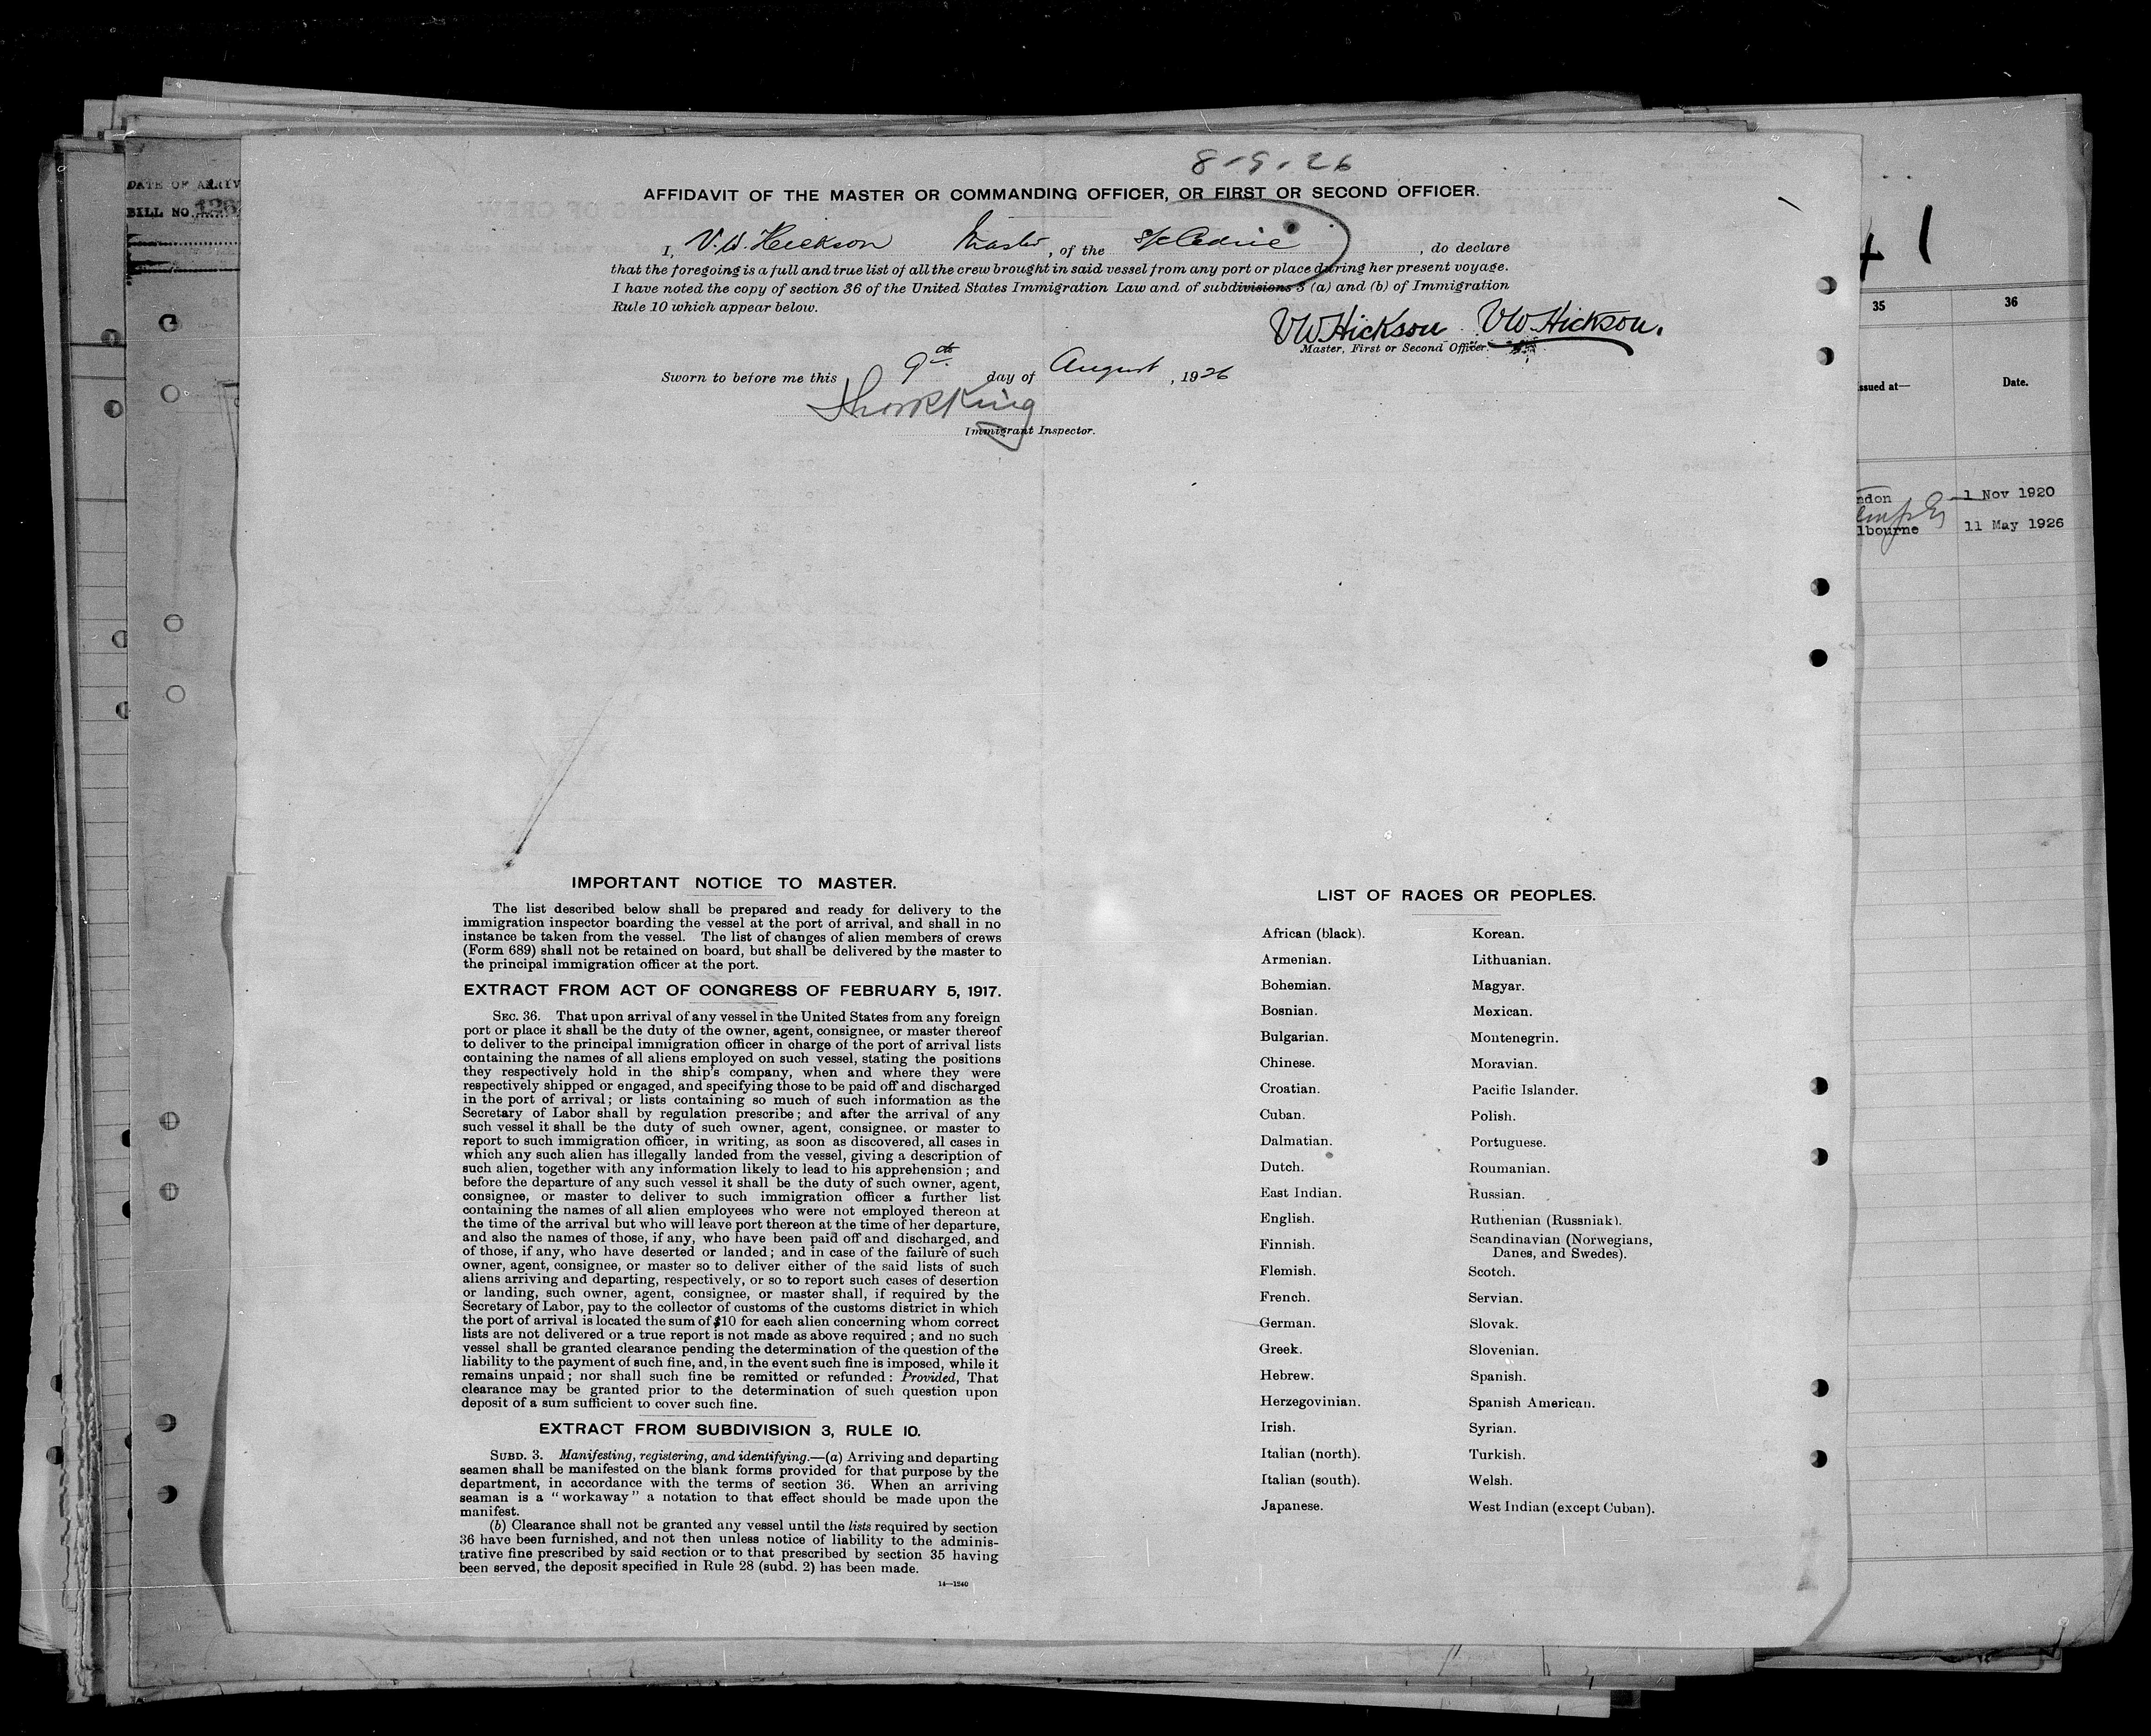 8-9-26
AFFIDAVIT OF THE MASTER OR COMMANDING OFFICER, OR FIRST OR SECOND OFFICER.
I, V. W. Hickson Master, of the S/S Cedric, do declare
that the foregoing is a full and true list of all the crew brought in said vessel from any port or place during her present voyage.
I have noted the copy of section 36 of the United States Immigration Law and of subdivisions 3 (a) and (b) of Immigration
Rule 10 which appear below.
VW Hickson. VW Hickson.
Master, First or Second Officer.
Sworn to before me this 9th day of August, 1926
King
Immigrant Inspector.
IMPORTANT NOTICE TO MASTER.
The list described below shall be prepared and ready for delivery to the
immigration inspector boarding the vessel at the port of arrival, and shall in no
instance be taken from the vessel. The list of changes of alien members of crews
(Form 689) shall not be retained on board, but shall be delivered by the master to
the principal immigration officer at the port.
EXTRACT FROM ACT OF CONGRESS OF FEBRUARY 5, 1917.
SEC. 36. That upon arrival of any vessel in the United States from any foreign
port or place it shall be the duty of the owner, agent, consignee, or master thereof
to deliver to the principal immigration officer in charge of the port of arrival lists
containing the names of all aliens employed on such vessel, stating the positions
they respectively hold in the ship's company, when and where they were
respectively shipped or engaged, and specifying those to be paid off and discharged
in the port of arrival; or lists containing so much of such information as the
Secretary of Labor shall by regulation prescribe; and after the arrival of any
such vessel it shall be the duty of such owner, agent, consignee, or master to
report to such immigration officer, in writing, as soon as discovered, all cases in
which any such alien has illegally landed from the vessel, giving a description of
such alien, together with any information likely to lead to his apprehension; and
before the departure of any such vessel it shall be the duty of such owner, agent,
consignee, or master to deliver to such immigration officer a further list
containing the names of all alien employees who were not employed thereon at
the time of the arrival but who will leave port thereon at the time of her departure,
and also the names of those, if any, who have been paid off and discharged, and
of those, if any, who have deserted or landed; and in case of the failure of such
owner, agent, consignee, or master so to deliver either of the said lists of such
aliens arriving and departing, respectively, or so to report such cases of desertion
or landing, such owner, agent, consignee, or master shall, if required by the
Secretary of Labor, pay to the collector of customs of the customs district in which
the port of arrival is located the sum of $10 for each alien concerning whom correct
lists are not delivered or a true report is not made as above required; and no such
vessel shall be granted clearance pending the determination of the question of the
liability to the payment of such fine, and, in the event such fine is imposed, while it
remains unpaid; nor shall such fine be remitted or refunded: Provided, That
clearance may be granted prior to the determination of such question upon
deposit of a sum sufficient to cover such fine.
EXTRACT FROM SUBDIVISION 3, RULE 10.
SUBD. 3. Manifesting, registering, and identifying.—(a) Arriving and departing
seamen shall be manifested on the blank forms provided for that purpose by the
department, in accordance with the terms of section 36. When an arriving
seaman is a "workaway" a notation to that effect should be made upon the
manifest.
(b) Clearance shall not be granted any vessel until the lists required by section
36 have been furnished, and not then unless notice of liability to the adminis-
trative fine prescribed by said section or to that prescribed by section 35 having
been served, the deposit specified in Rule 28 (subd. 2) has been made.
14—1240
LIST OF RACES OR PEOPLES.
African (black).
Armenian.
Bohemian.
Bosnian.
Bulgarian.
Chinese.
Croatian.
Cuban.
Dalmatian.
Dutch.
East Indian.
English.
Finnish.
Flemish.
French.
German.
Greek.
Hebrew.
Herzegovinian.
Irish.
Italian (north).
Italian (south).
Japanese.
Korean.
Lithuanian.
Magyar.
Mexican.
Montenegrin.
Moravian.
Pacific Islander.
Polish.
Portuguese.
Roumanian.
Russian.
Ruthenian (Russniak).
Scandinavian (Norwegians,
Danes, and Swedes).
Scotch.
Servian.
Slovak.
Slovenian.
Spanish.
Spanish American.
Syrian.
Turkish.
Welsh.
West Indian (except Cuban).
DATE OF ARRIV
BILL NO. 126
41
35
36
ssued at—
Date.
ndon
1 Nov 1920
lbourne
11 May 1926